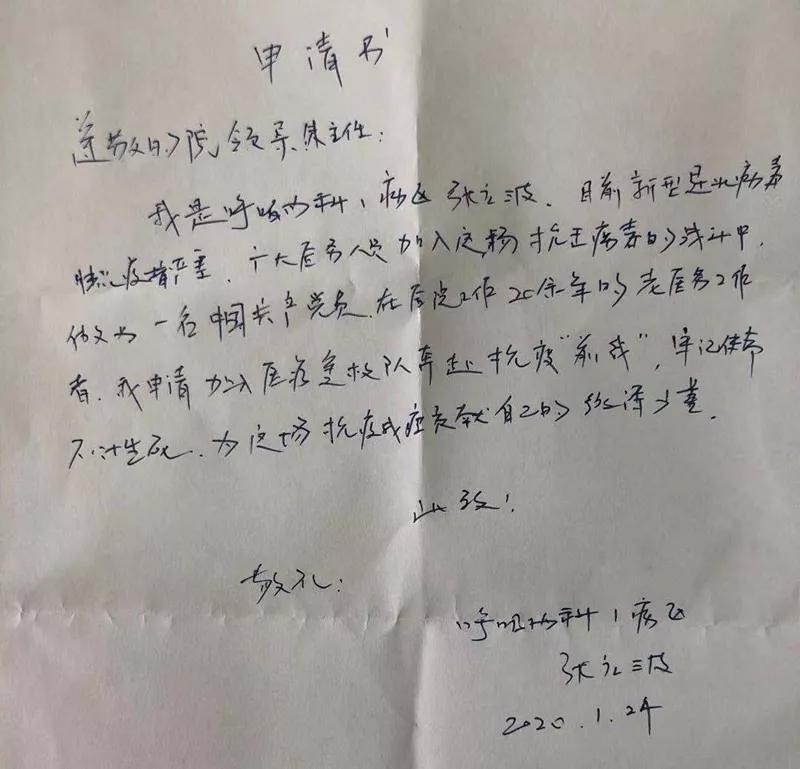 申请书
尊敬的院领导、朱主任：
我是呼吸内科1病区张立波。目前新型冠状病毒
肺炎疫情严重，广大医务人员加入这场抗击病毒的战斗中，
做为一名中国共产党员，在医院工作20余年的老医务工作
者，我申请加入医疗救援队奔赴抗疫“前线”，牢记使命
不计生死，为这场抗疫战疫贡献自己的力量。
此致！
敬礼：
呼吸内科1病区
张立波
2020.1.24